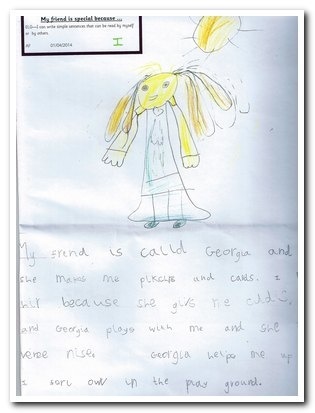 My friend is special because ...
ELG - I can write simple sentences that can be read by myself
or by others.
01/04/2014 I
My friend is calld Georgia and
she maks me and cards. I
because she givs me
and Georgia plays with me and she
nise. Georgia helps me up
I in the play ground.